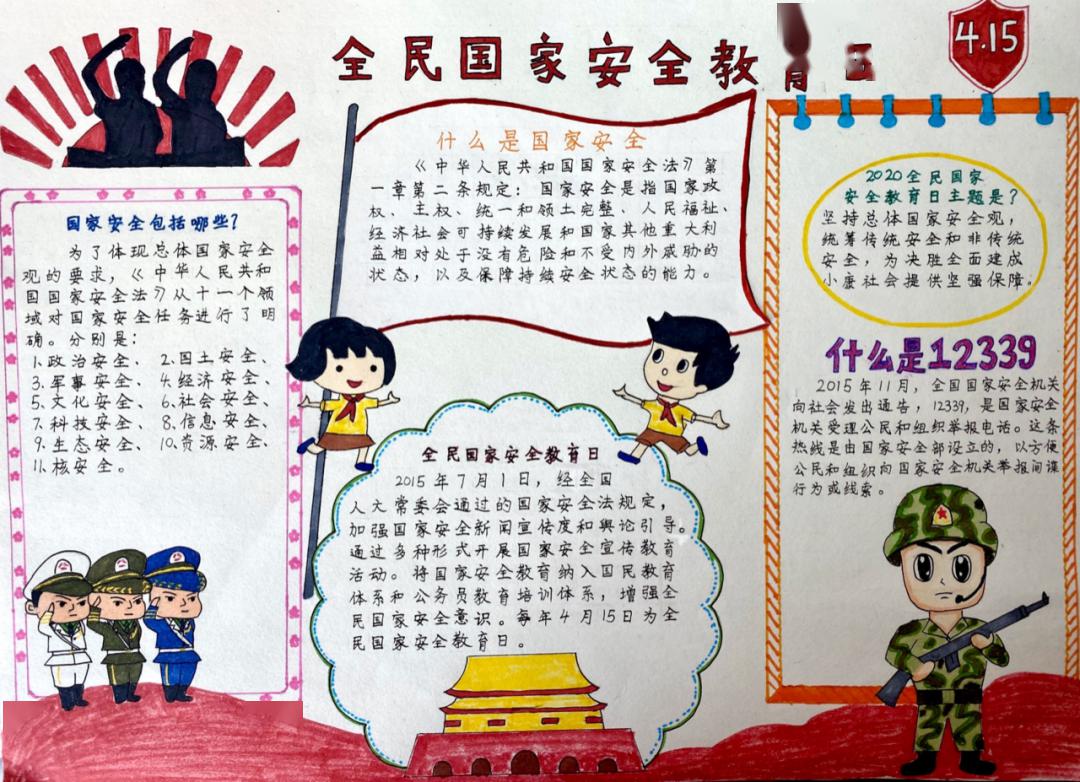 全民国家安全教育日
4.15
国家安全包括哪些？
为了体现总体国家安全
观的要求，《中华人民共和
国国家安全法》从十一个领
域对国家安全任务进行了明
确。分别是：
1.政治安全、 2.国土安全、
3.军事安全、 4.经济安全、
5.文化安全、 6.社会安全、
7.科技安全、 8.信息安全、
9.生态安全、 10.资源安全、
11.核安全。
什么是国家安全
《中华人民共和国国家安全法》第
一章第二条规定：国家安全是指国家政
权、主权、统一和领土完整、人民福祉、
经济社会可持续发展和国家其他重大利
益相对处于没有危险和不受内外威胁的
状态，以及保障持续安全状态的能力。
全民国家安全教育日
2015年7月1日，经全国
人大常委会通过的国家安全法规定，
加强国家安全新闻宣传度和舆论引导。
通过多种形式开展国家安全宣传教育
活动。将国家安全教育纳入国民教育
体系和公务员教育培训体系，增强全
民国家安全意识。每年4月15日为全
民国家安全教育日。
2020全民国家
安全教育日主题是？
坚持总体国家安全观，
统筹传统安全和非传统
安全，为决胜全面建成
小康社会提供坚强保障。
什么是12339
2015年11月，全国国家安全机关
向社会发出通告，12339，是国家安全
机关受理公民和组织举报电话。这条
热线是由国家安全部设立的，以方便
公民和组织向国家安全机关举报间谍
行为或线索。